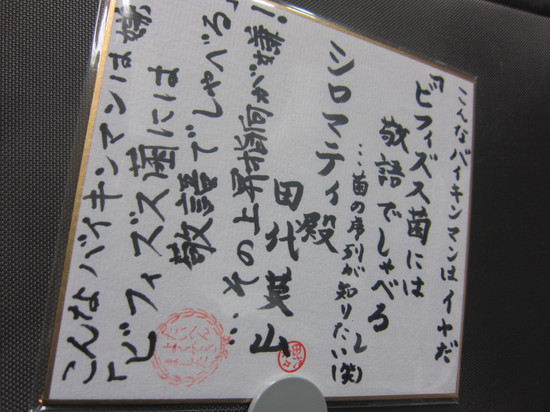 こんなバイキンマンはイヤだ
「ビフィズス菌には
敬語でしゃべる」
…菌の序列が知りたい(笑)
シロマティ殿
田代
こんなバイキンマンは嫌
「ビフィズス菌には
敬語でしゃべる」
…その上